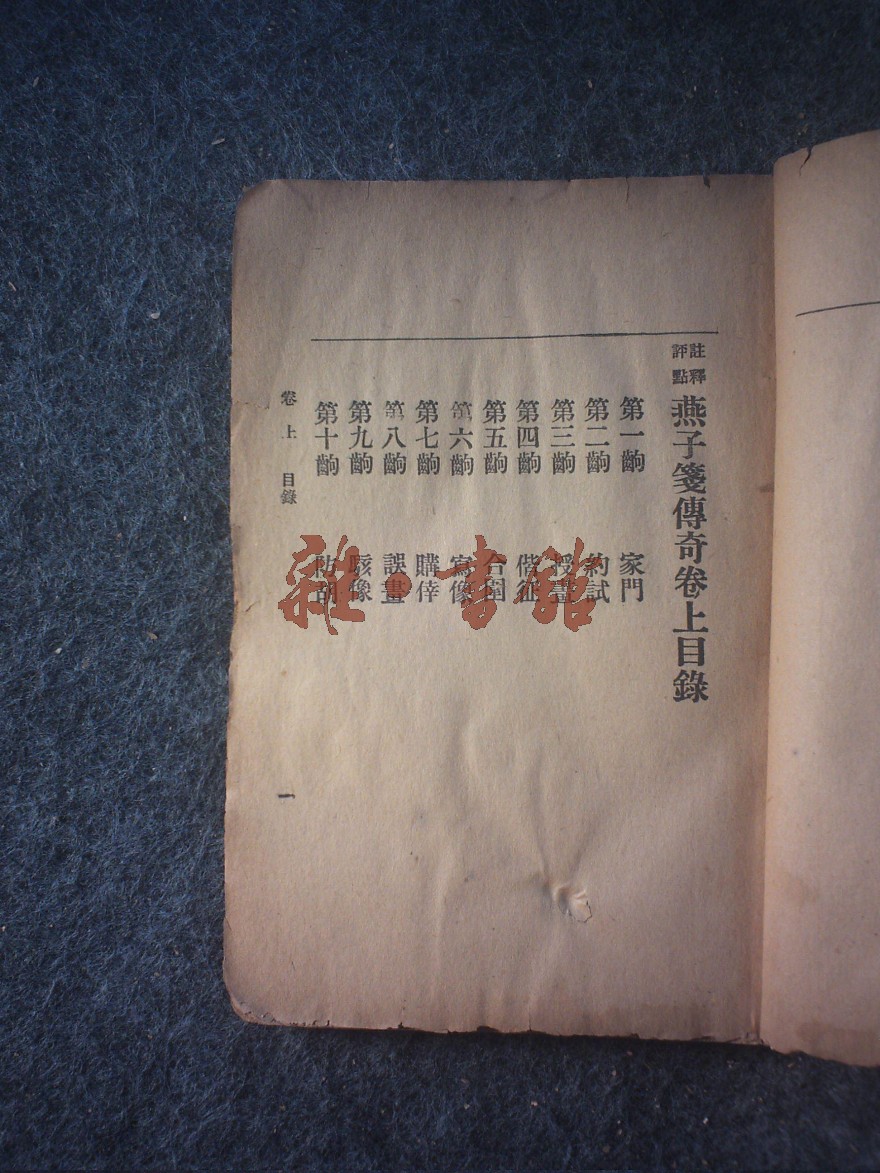 註釋評點燕子箋傳奇卷上目錄
第一齣 家門
第二齣 約試
第三齣 授畫
第四齣 偕征
第五齣 合圍
第六齣 寫像
第七齣 購倖
第八齣 誤畫
第九齣 駭像
第十齣 防胡
卷上 目錄
一
雜·書館